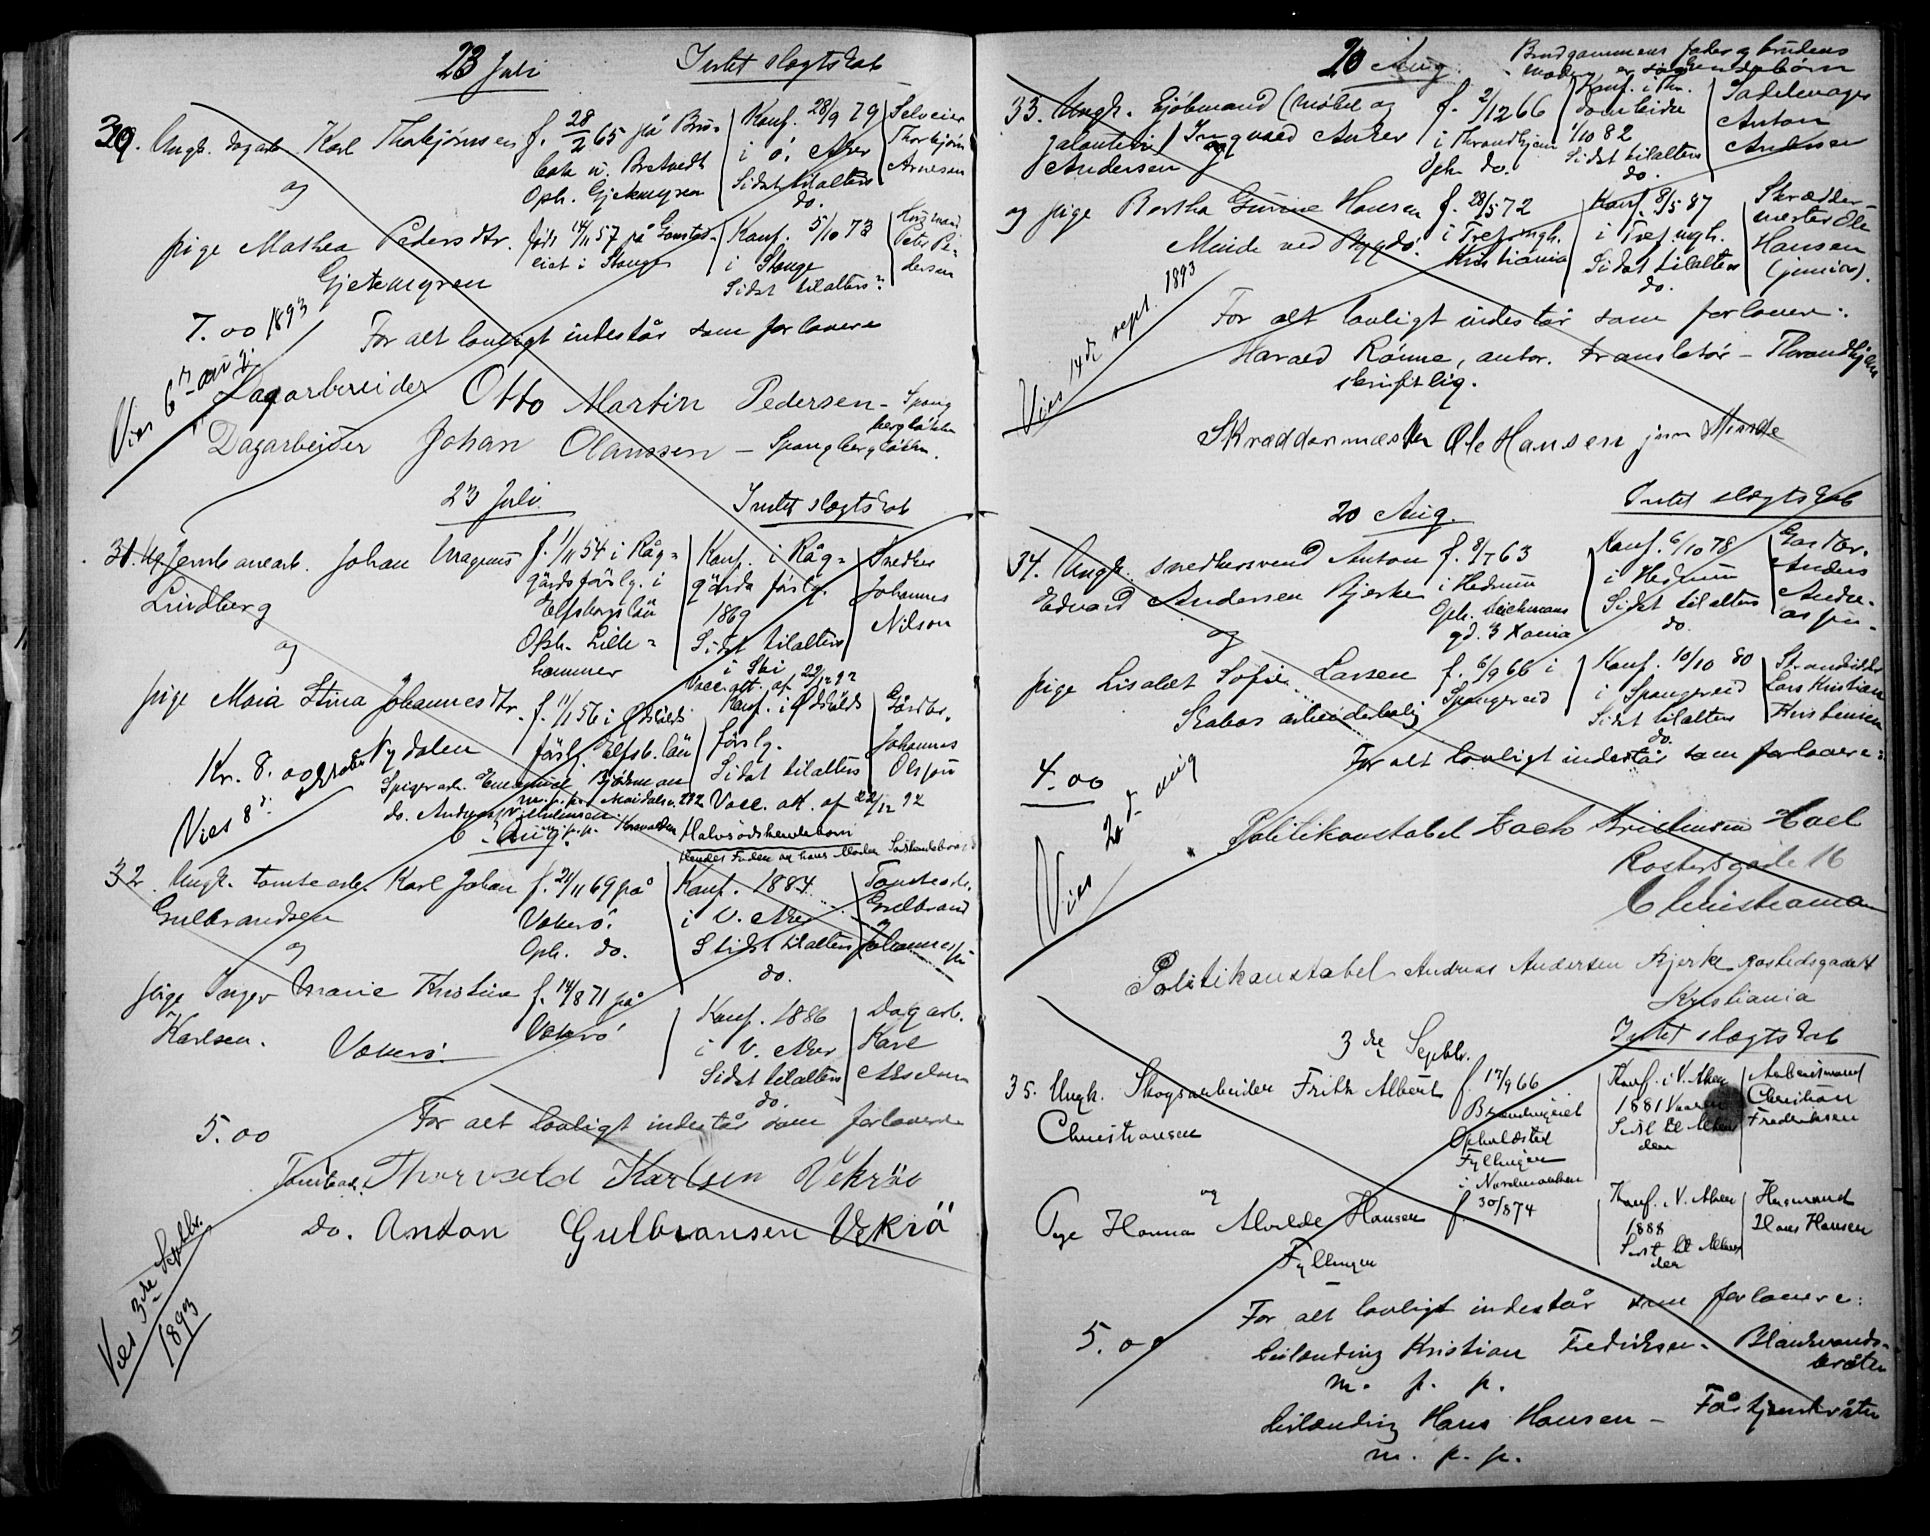 23 Juli
Intet slægtskab
30. Ungk. dagarb. Karl Thorbjørnsen
f. 28/2 65 på Bru-
bak u. Bretvedt
Oph. Gjetemyren
Konf. 28/9 79
i ö. Aker
Sidst tilalters
do.
Selveier
Thorbjørn
Arnesen
og
pige Mathea Pedersdtr.
Gjetemyren
født 14/11 57 på Gonstad-
eiet i Stange
Konf. 5/10 73
i Stange
Sidst tilalters
Husmand
Peter Pe-
dersen
7.00
Viet 6te aug. 1893
For alt lovligt indestår som forlovere
Dagarbeider Otto Martin Pedersen - Spang
bergløkken
Dagarbeider Johan Olaussen - Spangbergløkken.
23 Juli.
Intet slægtskab
31. Ug Jernbanearb. Johan Magnus
Lindberg
f. 1/11 54 i Råg-
gärds försig. i
Elfsborgs län
Oph. Lille-
hammer
Konf. i Råg-
gärds försig.
1869
Sidst tilalters
i Ski
Vacc.att. af 22/12 92
Snedker
Johannes
Nilson
og
pige Maria Stina Johannesdtr.
Nydalen
f. 11/1 56 i Ödskölds
försig. Elfsb. län
Konf. i Ödskölds
försig.
Sidst tilalters
Vacc. att. af 22/12 92
Gårdbr.
Johannes
Olsson
Kr. 8.00
Spigerarb. Emanuel Björkman
m. p. p. Maridalsv. 292
do. Andreas Vilhelmsen
m. p. p.
Viet 8d
6 Aug.
Halvsödskendebarn
Hendes Fader og hans Moder Södskendebarn
32. Ungk. Tomtearb. Karl Johan
Gulbrandsen
f. 21/11 69 på
Vækerö.
Oph. do.
Konf. 1884
i V. Aker
Sidst tilalters
do.
Tomtearb.
Gulbrand
Johannessen
og
pige Inger Marie Kristine
Karlsen. Vækerö.
f. 14/8 71 på
Vækerö
Konf. 1886
i V. Aker
Sidst tilalters
do.
Dagarb.
Karl
Akselsen
5.00
For alt lovligt indestår som forlovere
Tomtearb. Thorvald Karlsen Vekröe
do. Anton Gulbransen Vekrö
Viet 3die Septbr.
1893
20 Aug.
Brudgommens fader og brudens
moder er søskendebørn
33. Ungk. kjøbmand (møbel og
galanteri) Ingvald Anker
Andersen
f. 2/12 66
i Throndhjem
Oph. do.
Konf. i Thr.
domkirke
1/10 82
Sidst tilalters
do.
Sadelmager
Anton
Andersen
og pige Bertha Gunine Hansen
Minde ved Bygdö.
f. 28/5 72
i Trefmgh.
Kristiania
Konf. 8/5 87
i Trefmgh.
Sidst tilalters
do.
Skrædder-
mester Ole
Hansen
(junior).
Viet 14de sept. 1893
For alt lovligt indestår som forlovere:
Harald Rönne, autor. translatör - Throndhjem
skriftlig.
Skræddermester Ole Hansen jun Minde
20 Aug.
Intet slægtskab
34. Ungk. snedkersvend Anton
Edvard Andersen Bjerke
f. 8/7 63
i Hedrum
Oph. Deichmans
gd. 3 Kania
Konf. 6/10 78
i Hedrum
Sidst tilalters
do.
Gårdbr.
Anders
Andre-
assen
og
pige Lisabet Sofie Larsen
Skabos arbeiderbolig
f. 6/9 66 i
Spangereid
Konf. 10/10 80
i Spangereid
Sidst tilalters
do.
Strandsidder
Lars Kristian
Kristensen
4.00
Viet 20d. aug
For alt lovligt indestår som forlovere:
Politikonstabel Kristensen Hoel
Rostedsgade 16
Christiania
Politikonstabel Andreas Andersen Bjerke Rostedsgade
Kristiania
3die Septbr.
Intet slægtskab
35. Ungk. Skogsarbeider Fritz Albert
Christiansen
f. 17/9 66
Brændingeiet
Opholdsted
Fyllingen
i Nordmarken
Konf. i V. Aker
1881 Vaaren
Sidst til Alters
den
Arbeidsmand
Christian
Frederiksen
og
Pige Hanna Alvilde Hansen
Fyllingen
f. 30/8 74
Konf. i V. Aker
1888
Sidst til Alters
der
Husmand
Hans Hansen
5.00
For alt lovligt indestår som forlovere:
Leilænding Kristian Fredriksen - Blankvands-
bråten
m. p. p.
Leilænding Hans Hansen - Fåskjernbråten
m. p. p.